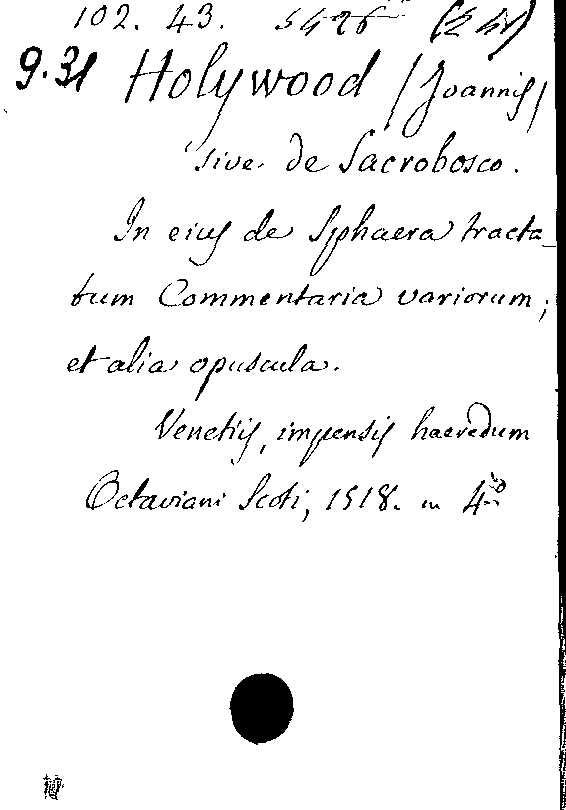 102. 43. 5426
9.31 Holywood (Joannis)
sive de Sacrobosco.
In eius de Sphaera tracta-
tum Commentaria variorum;
et alia opuscula.
Venetiis, impensis haeredum
Octaviani Scoti, 1518. in 4to